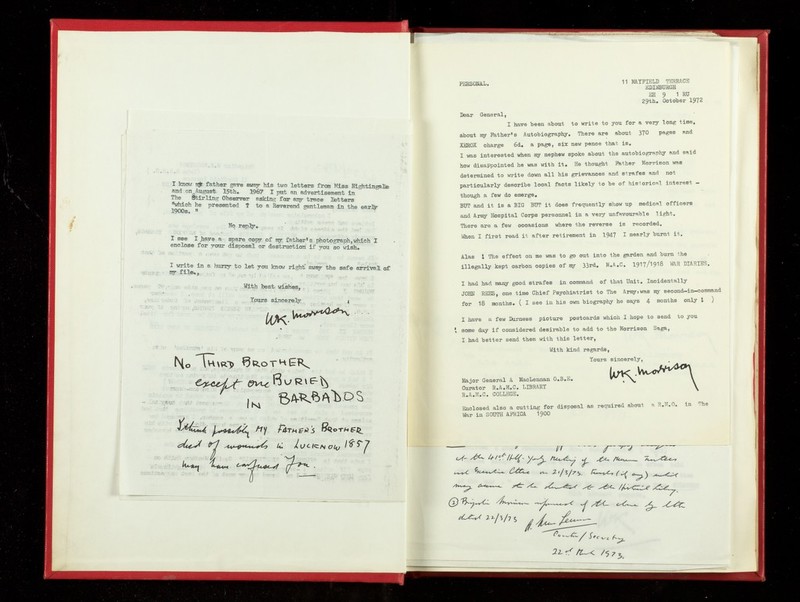 I know my father gave away his two letters from Miss Nightingale
and on August 15th. 1967 I put an advertisement in
The Stirling Observer asking for any trace letters
"which he presented ? to a Reverend gentleman in the early
1900s. "
No reply.
I see I have a spare copy of my father's photograph,which I
enclose for your disposal or destruction if you so wish.
I write in a hurry to let you know right away the safe arrival of
my file.,
With best wishes,
Yours sincerely
W.K. Morrison
No THIRD BROTHER
except one BURIED
IN BARBADOS
I think possibly MY FATHER'S BROTHER
died of wounds in LUCKNOW 1857
may have confused you
PERSONAL.
11 MAYFIELD TERRACE
EDINBURGH
EH 9 1 RU
29th. October 1972
Dear General,
I have been about to write to you for a very long time,
about my Father's Autobiography. There are about 370 pages and
XEROX charge 6d. a page, six new pence that is.
I was interested when my nephew spoke about the autobiography and said
how disappointed he was with it. He thought Father Morrison was
determined to write down all his grievances and strafes and not
particularly describe local facts likely to be of historical interest -
though a few do emerge.
BUT and it is a BIG BUT it does frequently show up medical officers
and Army Hospital Corps personnel in a very unfavourable light.
There are a few occasions where the reverse is recorded.
When I first read it after retirement in 1947 I nearly burnt it.
Alas ! The effect on me was to go out into the garden and burn the
illegally kept carbon copies of my 33rd. F.A.C. 1917/1918 WAR DIARIES.
I had had many good strafes in command of that Unit. Incidentally
JOHN REES, one time Chief Psychiatrist to The Army.was my second-in-command
for 18 months. ( I see in his own biography he says 4 months only ! )
I have a few Durness picture postcards which I hope to send to you
some day if considered desirable to add to the Morrison Saga,
I had better send them with this letter,
With kind regards,
Yours sincerely,
W.K. Morrison
Major General A MacLennan O.B.E.
Curator R.A.M.C. LIBRARY
R.A.M.C. COLLEGE.
Enclosed also a cutting for disposal as required about a R.M.O. in The
War in SOUTH AFRICA 1900
at the 41st Half-Yearly Meeting of the Museum Trustees
and Executive Cttee on 21/3/73. (if any)
may to be to the Historical
② Brigadier Morrison informed of the above by letter
dated 22/3/73
A. MacLennan
Curator/Secretary
22nd March 1973.